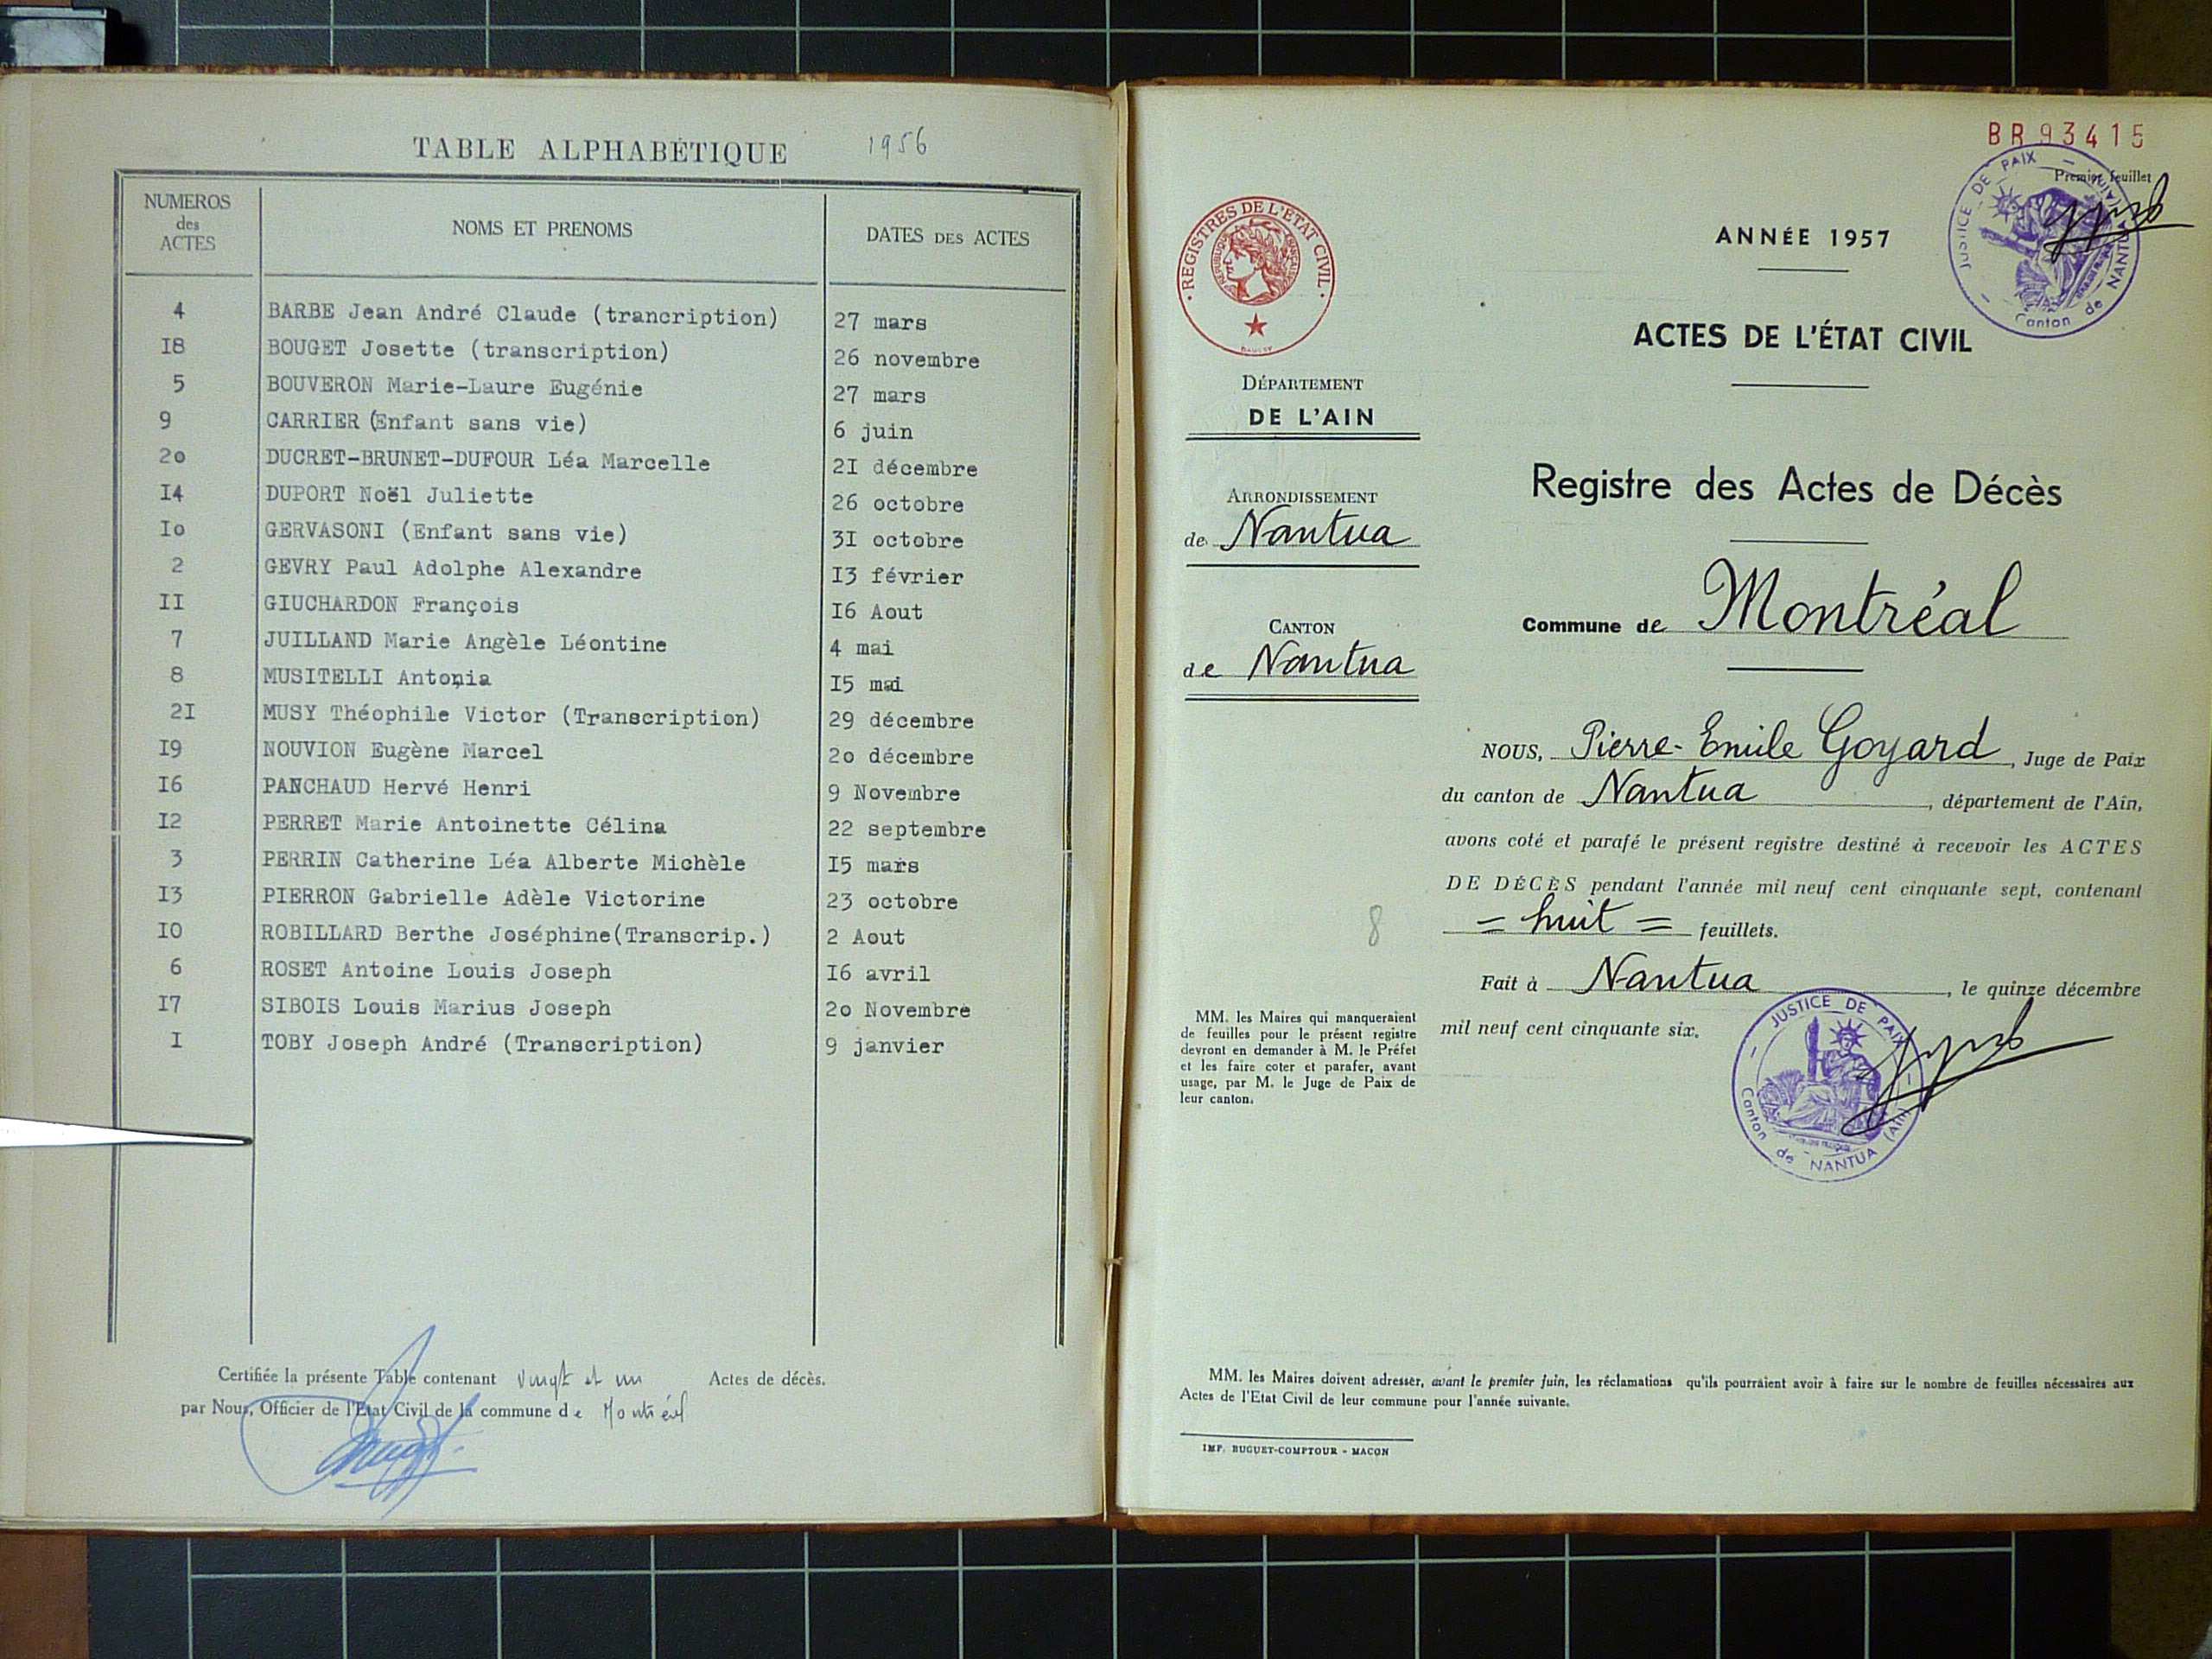 TABLE ALPHABÉTIQUE 1956
NUMEROS des ACTES NOMS ET PRENOMS DATES DES ACTES
4 BARBE Jean André Claude (trancription) 27 mars
I8 BOUGET Josette (transcription) 26 novembre
5 BOUVERON Marie-Laure Eugénie 27 mars
9 CARRIER (Enfant sans vie) 6 juin
2o DUCRET-BRUNET-DUFOUR Léa Marcelle 2I décembre
I4 DUPORT Noël Juliette 26 octobre
Io GERVASONI (Enfant sans vie) 3I octobre
2 GEVRY Paul Adolphe Alexandre I3 février
II GIUCHARDON François I6 Aout
7 JUILLAND Marie Angèle Léontine 4 mai
8 MUSITELLI Antonia I5 mai
2I MUSY Théophile Victor (Transcription) 29 décembre
I9 NOUVION Eugène Marcel 2o décembre
I6 PANCHAUD Hervé Henri 9 Novembre
I2 PERRET Marie Antoinette Célina 22 septembre
3 PERRIN Catherine Léa Alberte Michèle I5 mars
I3 PIERRON Gabrielle Adèle Victorine 23 octobre
IO ROBILLARD Berthe Joséphine(Transcrip.) 2 Aout
6 ROSET Antoine Louis Joseph I6 avril
I7 SIBOIS Louis Marius Joseph 2o Novembre
I TOBY Joseph André (Transcription) 9 janvier
Certifiée la présente Table contenant vingt et un Actes de décès.
par Nous, Officier de l'Etat Civil de la commune de Montréal
BR 93415
Premier feuillet
JUSTICE DE PAIX
Canton de NANTUA (AIN)
REGISTRES DE L'ÉTAT CIVIL
REPUBLIQUE FRANÇAISE
ANNÉE 1957
ACTES DE L'ÉTAT CIVIL
DÉPARTEMENT
DE L'AIN
Registre des Actes de Décès
ARRONDISSEMENT
de Nantua
Commune de Montréal
CANTON
de Nantua
NOUS, Pierre-Emile Goyard, Juge de Paix
du canton de Nantua, département de l'Ain,
avons coté et parafé le présent registre destiné à recevoir les ACTES
DE DÉCÈS pendant l'année mil neuf cent cinquante sept, contenant
= huit = feuillets.
8
Fait à Nantua, le quinze décembre
mil neuf cent cinquante six.
JUSTICE DE PAIX
Canton de NANTUA (Ain)
MM. les Maires qui manqueraient
de feuilles pour le présent registre
devront en demander à M. le Préfet
et les faire coter et parafer, avant
usage, par M. le Juge de Paix de
leur canton.
MM. les Maires doivent adresser, avant le premier juin, les réclamations qu'ils pourraient avoir à faire sur le nombre de feuilles nécessaires aux
Actes de l'Etat Civil de leur commune pour l'année suivante.
IMP. BUGUET-COMPTOUR - MACON